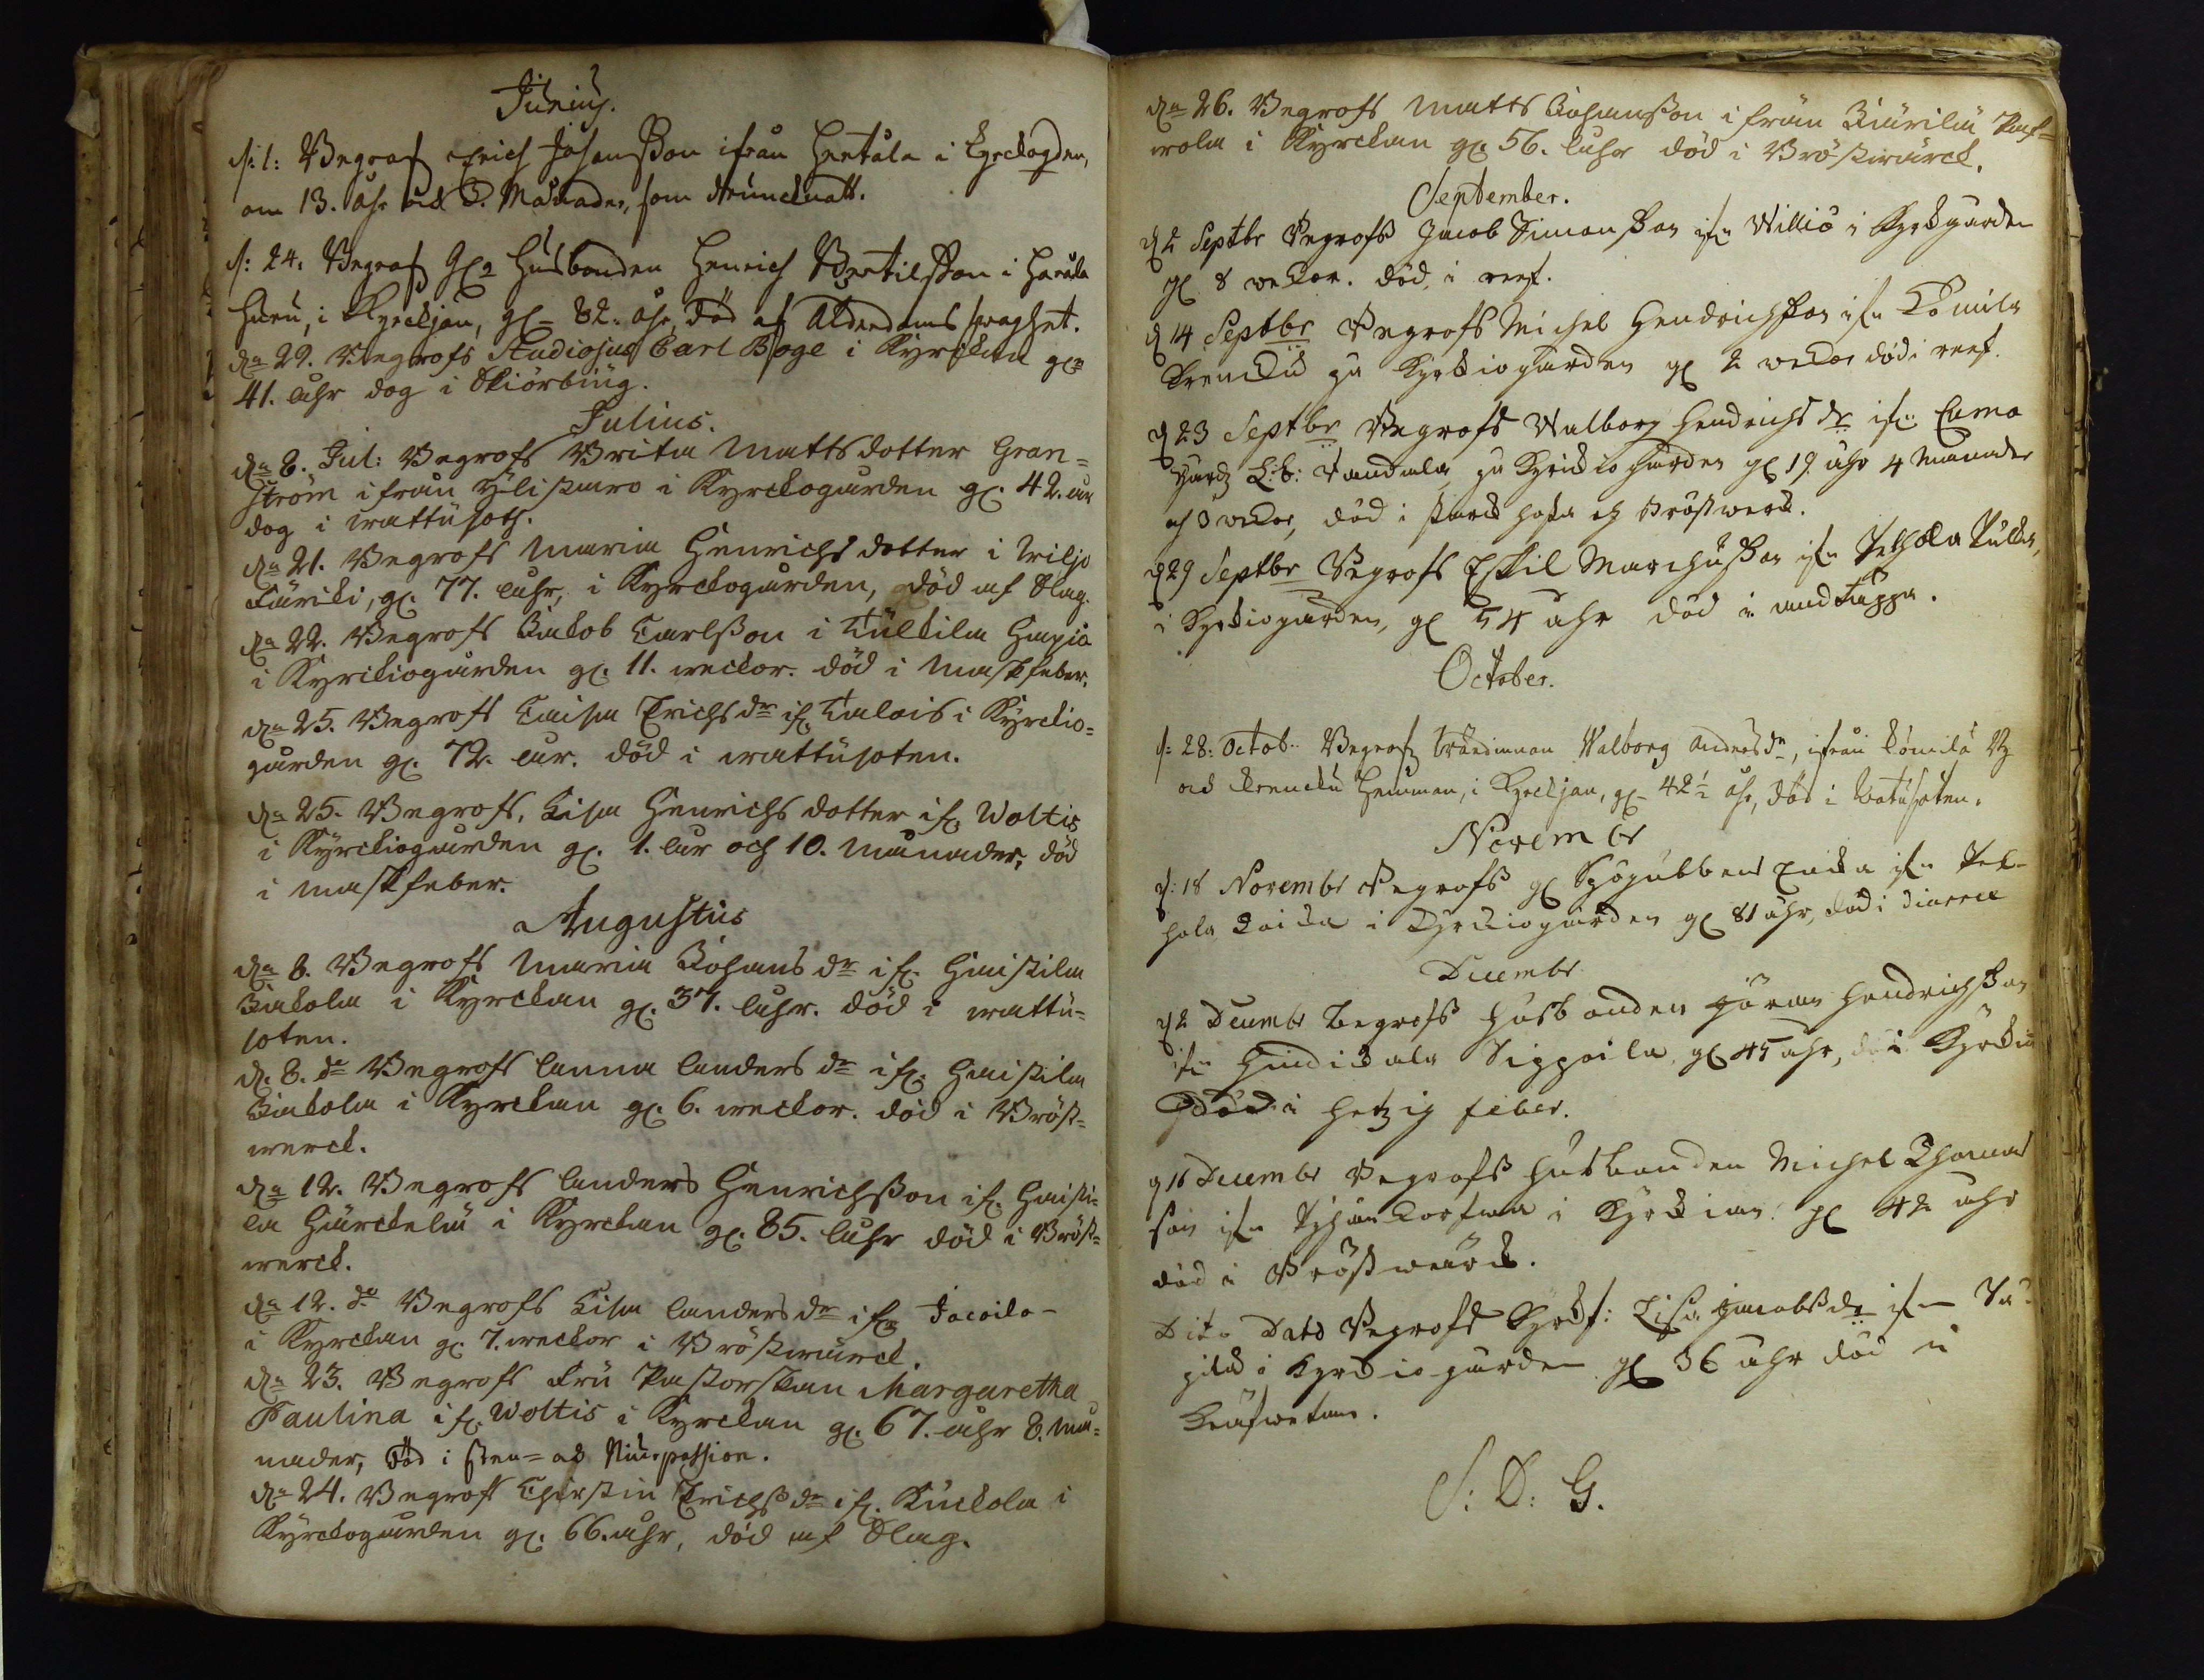 Junius.
d: 1: Begrafs Erich Johansson ifrån Heetåla i Kyrckogden,
om 13. åhr och 3. Månader, som druncknatt.
d: 24. Begrafs Gl. Husbonden Henrich Bertilsson i Harala
i Kyrckjan, gl. 82. åhr, död af Ålderdoms swaghet.
dn 29. Begrofs Studiosus Carl Boge i Kyrckan gl.
41. åhr dog i Skiörbiug.
Julius.
dn 8. Jul: Begrofs Brita Mattsdotter Gran=
ström ifrån Ylistaro i Kyrckogården gl. 42. åar
dog i wattusoth.
dn 21. Begrofs Maria Henrichsdotter i Wiljo
gl. 77. åhr, i Kyrckogården, död af Slag.
dn 22. Begrofs Jakob Carlsson i Kulkila
i Kyrckiogården gl. 11. weckor. död i Maskfeber.
dn 25. Begrofs Caisa Erichsdr ifr. Talois i Kyrckio=
gården gl. 72. åar. död i wattusoten.
dn 25. Begrofs, Lisa Henrichsdotter ifr. Woltis
i Kyrckiogården gl. 1. åar och 10. månader, död
i maskfeber.
Augustus
dn 8. Begrofs Maria Johansdr ifr. Haistila
Jakola i Kyrckan gl. 37. åhr. död i wattu=
soten.
d. 8. do Begrofs Anna Andersdr ifr. Haistila
Jakola i Kyrckan gl. 6. weckor. död i Bröst=
werck.
dn 12. Begrofs Anders Henrichsson ifr. Haisti=
la i Kyrckan gl. 85. åhr död i Bröst=
werck.
dn 12. do Begrofs Lisa Andersdr ifr. Jacoila
i Kyrckan gl. 7. weckor i Bröstwärck.
dn 23. Begrofs Fru Pastorskan Margaretha
Paulina ifr. Woltis i Kyrckan gl. 67. åhr 8. må=
nader, död i sten= och Niurpassion.
dn 24. Begrofs Chirstin Erichsdr ifr. Kuckola i
Kyrckogården gl. 66. åhr, död af Slag.
dn 26. Begrofs Matts Johansson ifrån
i Kyrckan gl. 56. åhr död i Bröstwärck.
September.
d 2 Septbr Begrofs Jacob Simonsson ifrn Willio i Kyrkgården
gl 8 wekor. död i reef.
d 14 Septbr Begrofs Michel Hendrichsson ifrn Komila
på Kyrkiogården gl 2 wekor död i reef.
d 23 Septbr Begrofs Walborg Hendrichsdr ifrn Cumo
på Kyrkiogården gl 19 åhr 4 månader
och 3 wekor, död i stark hosta och Bröstwerck.
d 29 Septbr Begrofs Eskil Marchusson ifrn
i Kyrkiogården, gl 54 åhr död i andtäppa.
October.
d: 28: Octob. Begrafs Wärdinnan Walborg Andersdr, ifrån Kömilä By
och Krenckü Hemman, i Kyrckjan, gl. 42½ åhr, död i Watusoten.
Novembr
d: 18 Novembr Begrofs gl i Kyrckiogården gl 81 åhr, död i diarree
Decembr
d 2 Decembr begrofs husbonden Göran Hendrichsson
ifrn Sippoila gl 45 åhr, i Kyrkia
död i hetzig feber.
d 16 Decembr Begrofs husbonden Michel Thomas
son ifrn i Kyrkian gl 42 åhr
död i Bröstwärck.
Dito Dato Begrofs Lisa Jacobsdr ifrn
i Kyrkiogården gl 36 åhr död i
S: D: G.